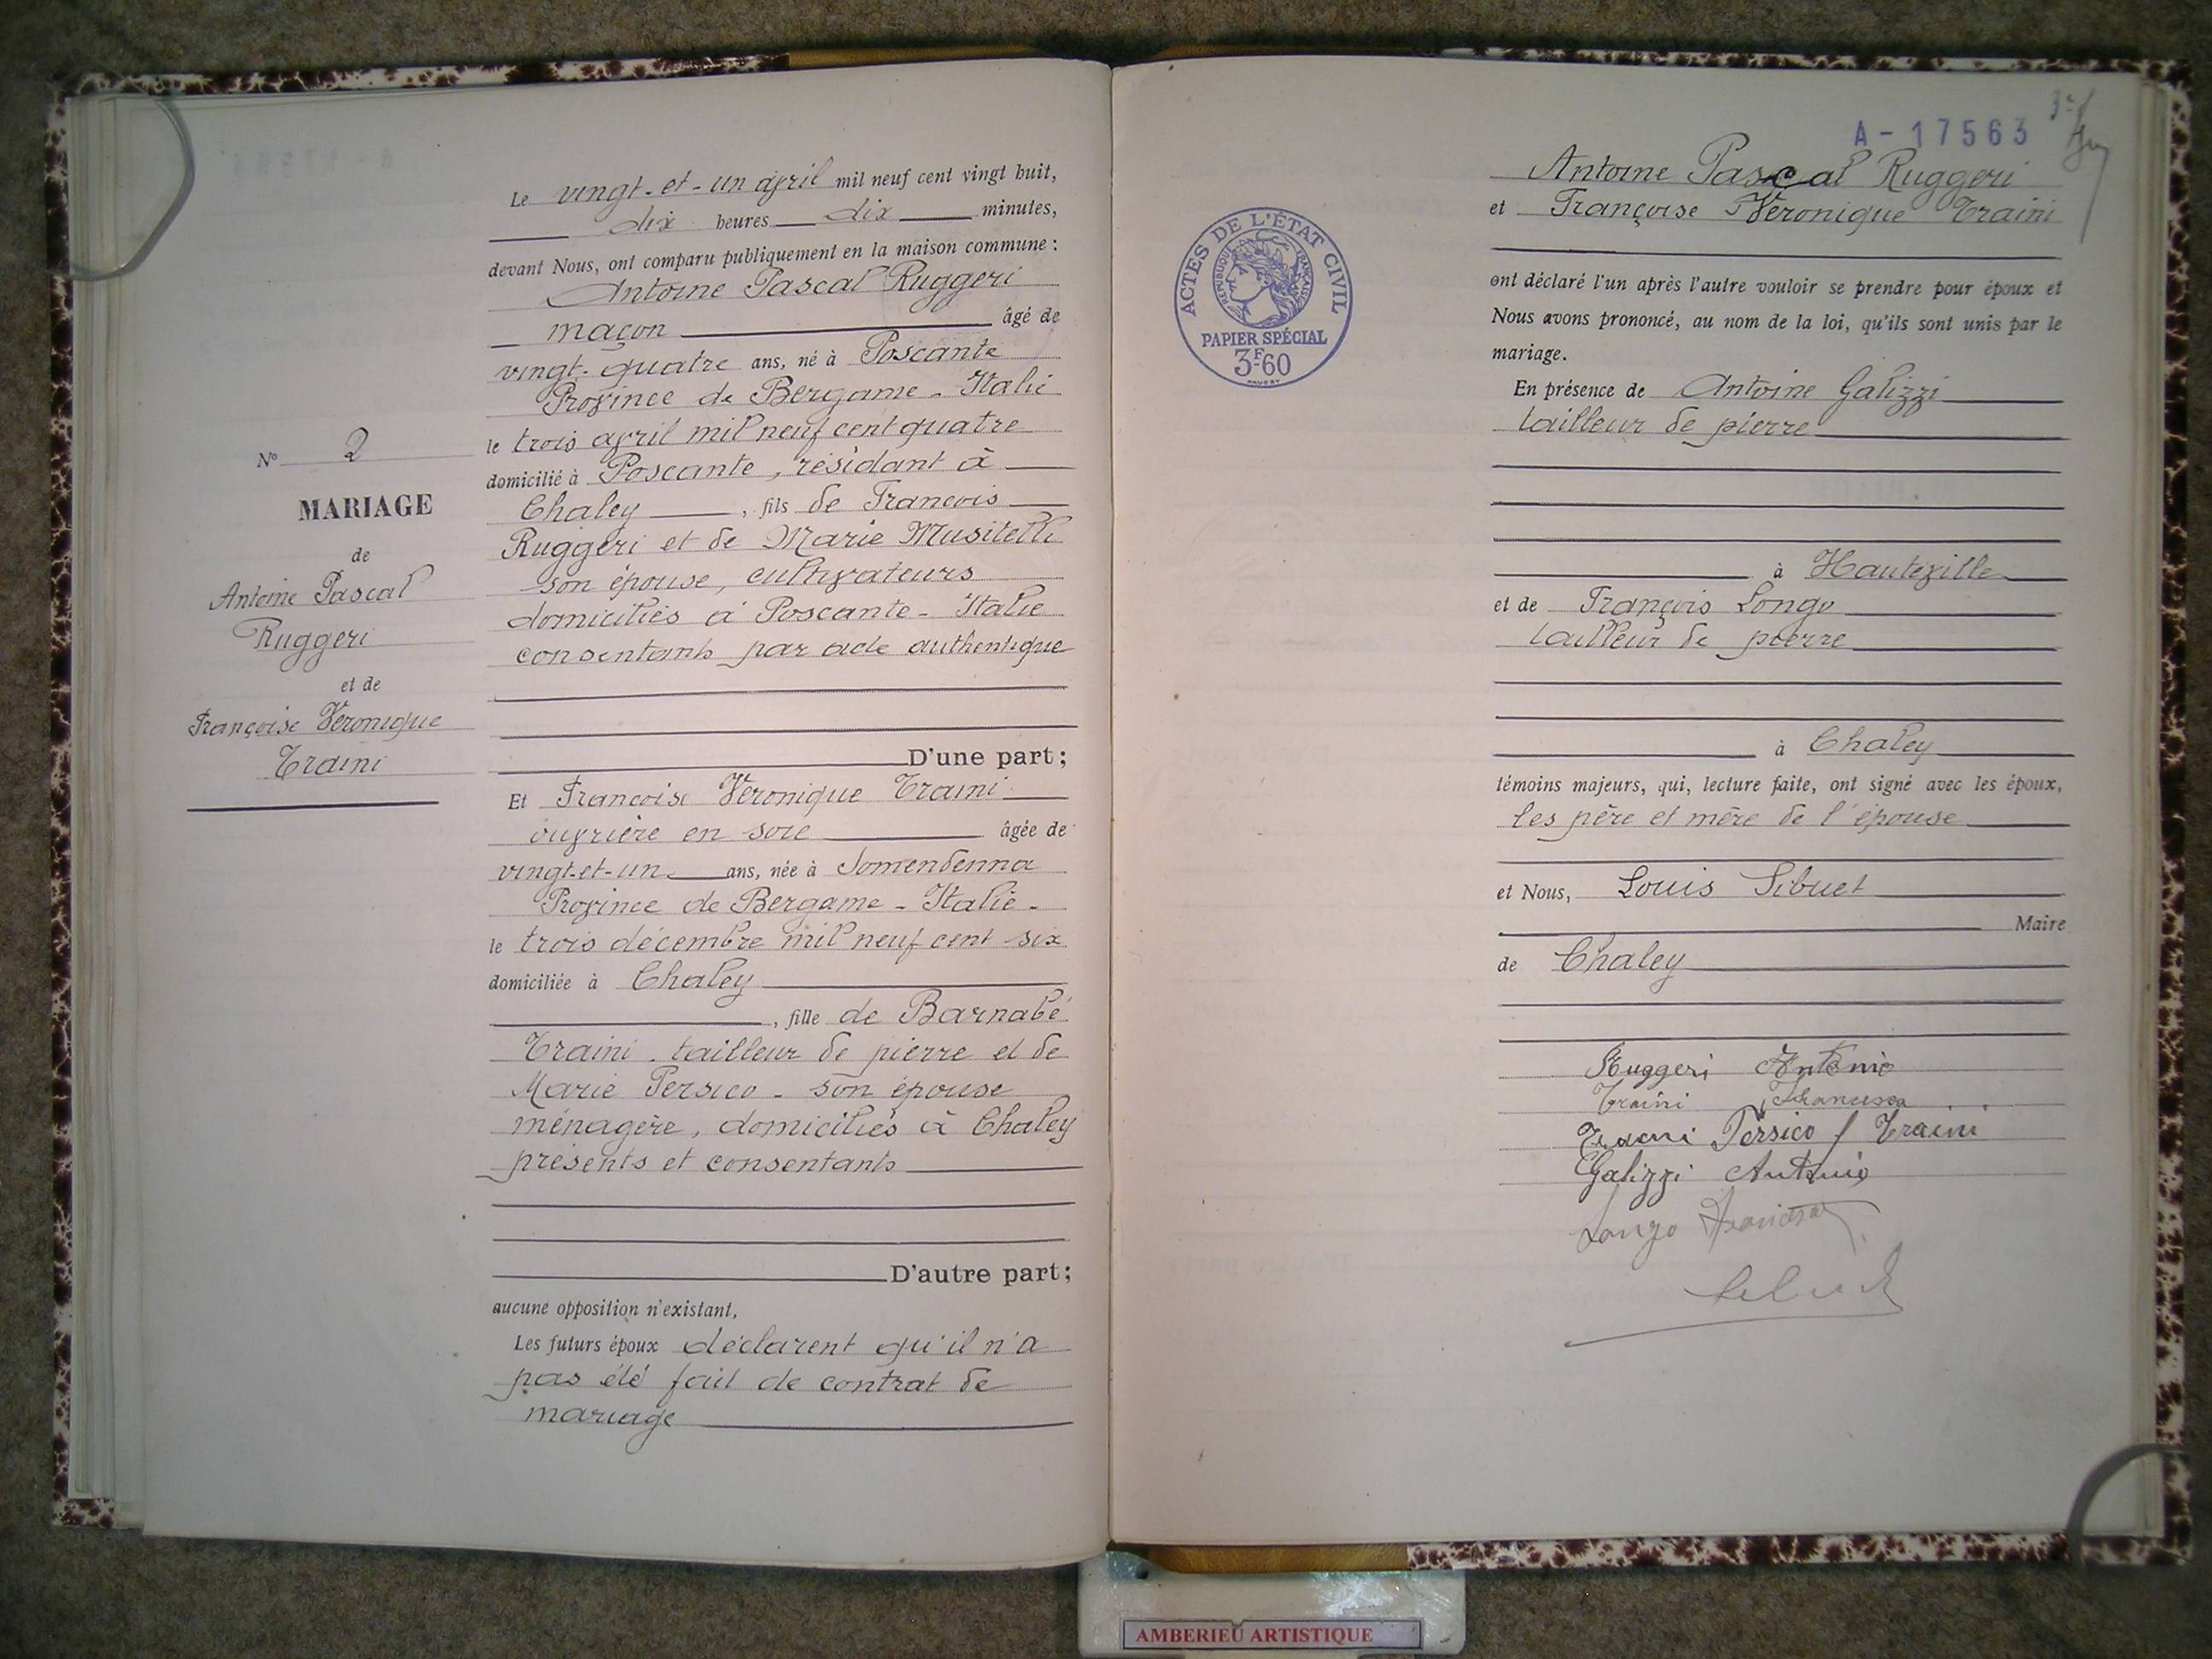 Nº 2
MARIAGE
de
Antoine Pascal
Ruggeri
et de
Françoise Véronique
Traini
Le vingt-et-un avril mil neuf cent vingt huit,
dix heures dix minutes,
devant Nous, ont comparu publiquement en la maison commune :
Antoine Pascal Ruggeri
maçon âgé de
vingt-quatre ans, né à Poscante
Province de Bergame - Italie
le trois avril mil neuf cent quatre
domicilié à Poscante, résidant à
Chaley, fils de Francois
Ruggeri et de Marie Musitelli
son épouse, cultivateurs
domiciliés à Poscante - Italie
consentants par acte authentique
D'une part;
Et Francoise Véronique Traini
ouvrière en soie âgée de
vingt-et-un ans, née à Somendenna
Province de Bergame - Italie -
le trois décembre mil neuf cent six
domiciliée à Chaley
, fille de Barnabé
Traini. tailleur de pierre et de
Marie Persico - son épouse
ménagère, domiciliés à Chaley
présents et consentants
D'autre part;
aucune opposition n'existant,
Les futurs époux déclarent qu'il n'a
pas été fait de contrat de
mariage
A-17563
Antoine Pascal Ruggeri
et Françoise Véronique Traini
ont déclaré l'un après l'autre vouloir se prendre pour époux et
Nous avons prononcé, au nom de la loi, qu'ils sont unis par le
mariage.
En présence de Antoine Galizzi
tailleur de pierre
à Hauteville
et de François Longo
tailleur de pierre
à Chaley
témoins majeurs, qui, lecture faite, ont signé avec les époux,
les père et mère de l'épouse
et Nous, Louis Sibuet
Maire
de Chaley
Ruggeri Antonio
Traini Francesca
Traini Persico f Traini
Galizzi Antonio
Longo
Sibuet
ACTES DE L'ÉTAT CIVIL
RÉPUBLIQUE FRANÇAISE
PAPIER SPÉCIAL
3F60
AMBERIEU ARTISTIQUE